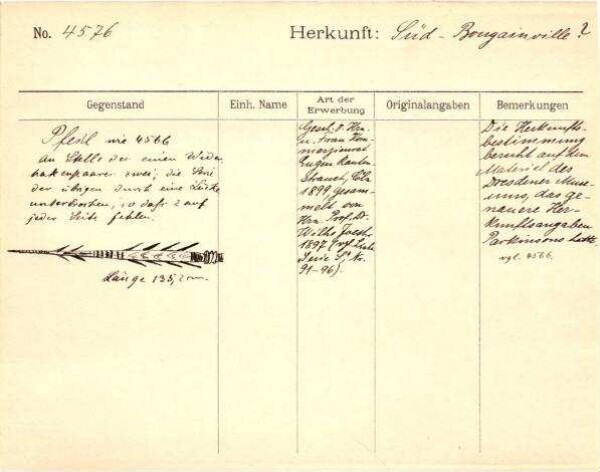 No. 4576
Herkunft: Süd-Bougainville?
Gegenstand
Einh. Name
Art der Erwerbung
Originalangaben
Bemerkungen
Pfeil wie 4566
An Stelle der einen Wider-
hakenpaare zwei; die Serie
der übrigen durch eine Lücke
unterbrochen, so daß 2 auf
jeder Seite fehlen.
Länge 135,2 cm.
Gesch. v. Hrn.
u. Frau Kom-
merzienrat
Eugen Rauten-
strauch, Cöln
1899, gesam-
melt von
Hrn. Prof. Dr.
Wilh. Joest
1897 (vgl. Liste
Serie S, Nr.
91-96).
Die Herkunfts-
bestimmung
beruht auf dem
Material des
Dresdener Muse-
ums, das ge-
nauere Her-
kunftsangaben
Parkinsons hatte
vgl. 4566.